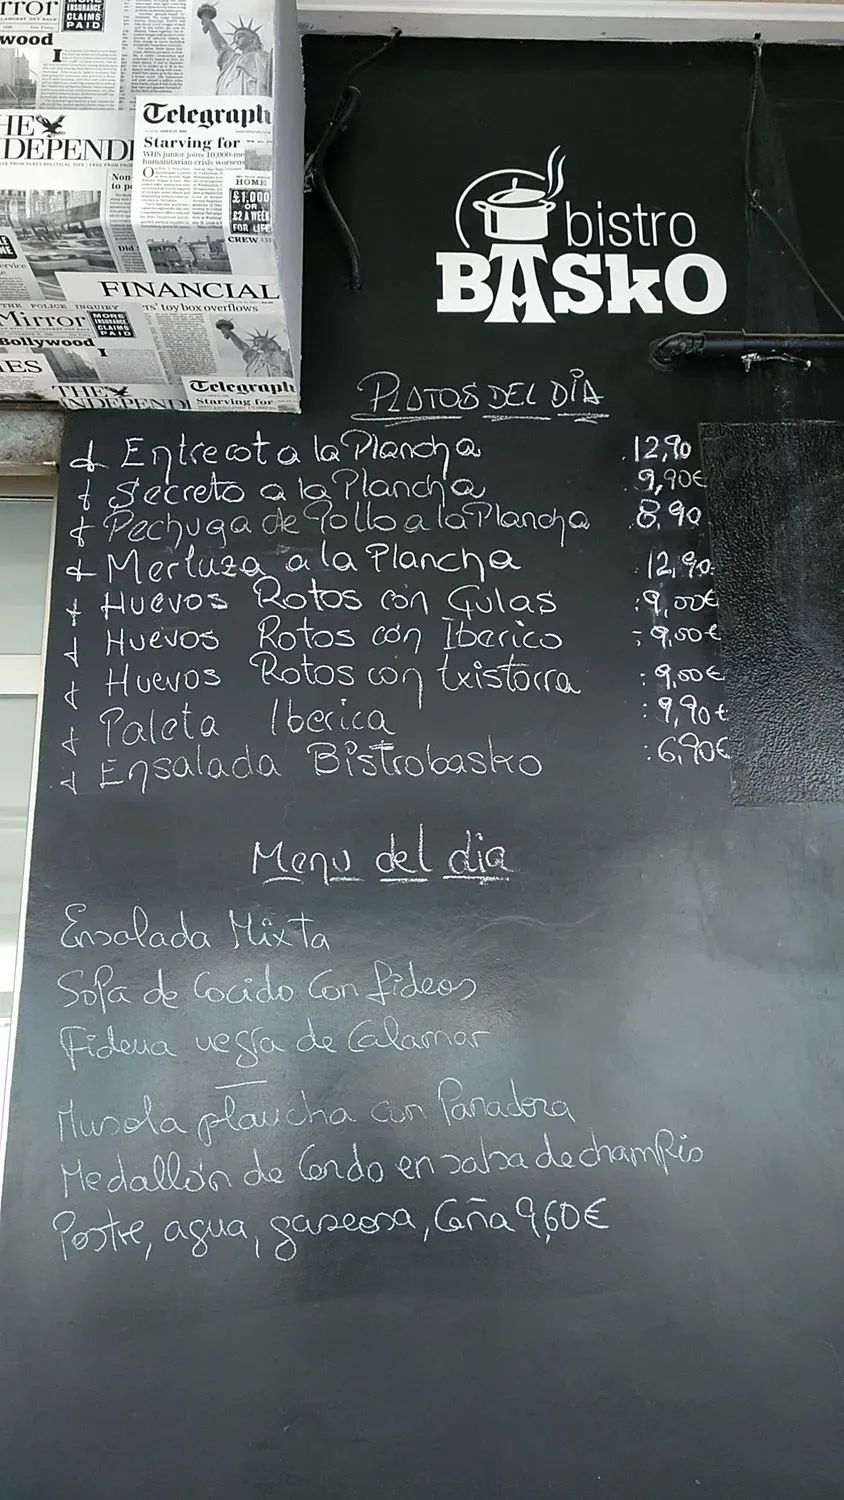 rror
MORE
INSURANCE
CLAIMS
PAID
wood
THE
INDEPENDENT
Telegraph
Starving for
WHS junior joins 10,000-me
humanitarian crisis worsens
Non-
to po
HOME
£1,000
OR
£2 A WEEK
FOR LIFE
CREW
Did
ervice
FINANCIAL
THE POLICE INQUIRY
rs' toy box overflows
Mirror
MORE
INSURANCE
CLAIMS
PAID
Bollywood
MES
THE
INDEPENDENT
Telegraph
Starving for
bistro
BASkO
PLATOS DEL DÍA
+ Entrecot a la Plancha 12,90
+ Secreto a la Plancha 9,90€
+ Pechuga de Pollo a la Plancha 8,90
+ Merluza a la Plancha 12,90
+ Huevos Rotos con Gulas :9,00€
+ Huevos Rotos con Iberico :9,00€
+ Huevos Rotos con txistorra :9,00€
+ Paleta Iberica :9,90€
+ Ensalada Bistrobasko :6,90€
Menu del dia
Ensalada Mixta
Sopa de Cocido Con fideos
Fideua negra de Calamar
Musola plancha con Panadera
Medallón de Cerdo en salsa de champis
Postre, agua, gaseosa, Caña 9,60€